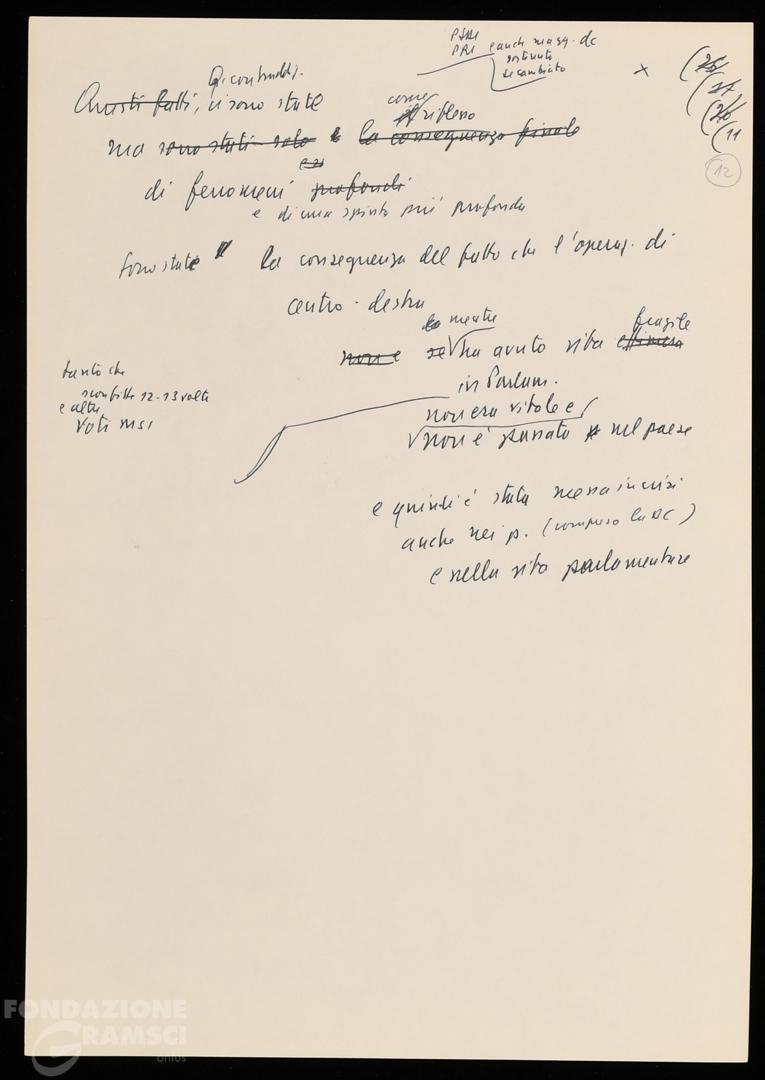 PSDI
PRI e anche magg. dc
sostenuto
se cambiato
x
(11
12
Q. contradd.
Questi fatti, ci sono state
come
riflesso
ma sono stati solo la conseguenza finale
di fenomeni profondi
e di una spinta più profonda
sono state la conseguenza del fatto che l'operaz. di
centro-destra
mentre fragile
non è se ha avuto vita effimera
in Parlam.
tanto che
sconfitte 12-13 volte
e altre
voti MSI
non era vitale e
non è passato nel paese
e quindi è stata messa in crisi
anche nei p. (compreso la DC)
e nella vita parlamentare
FONDAZIONE
GRAMSCI
onlus